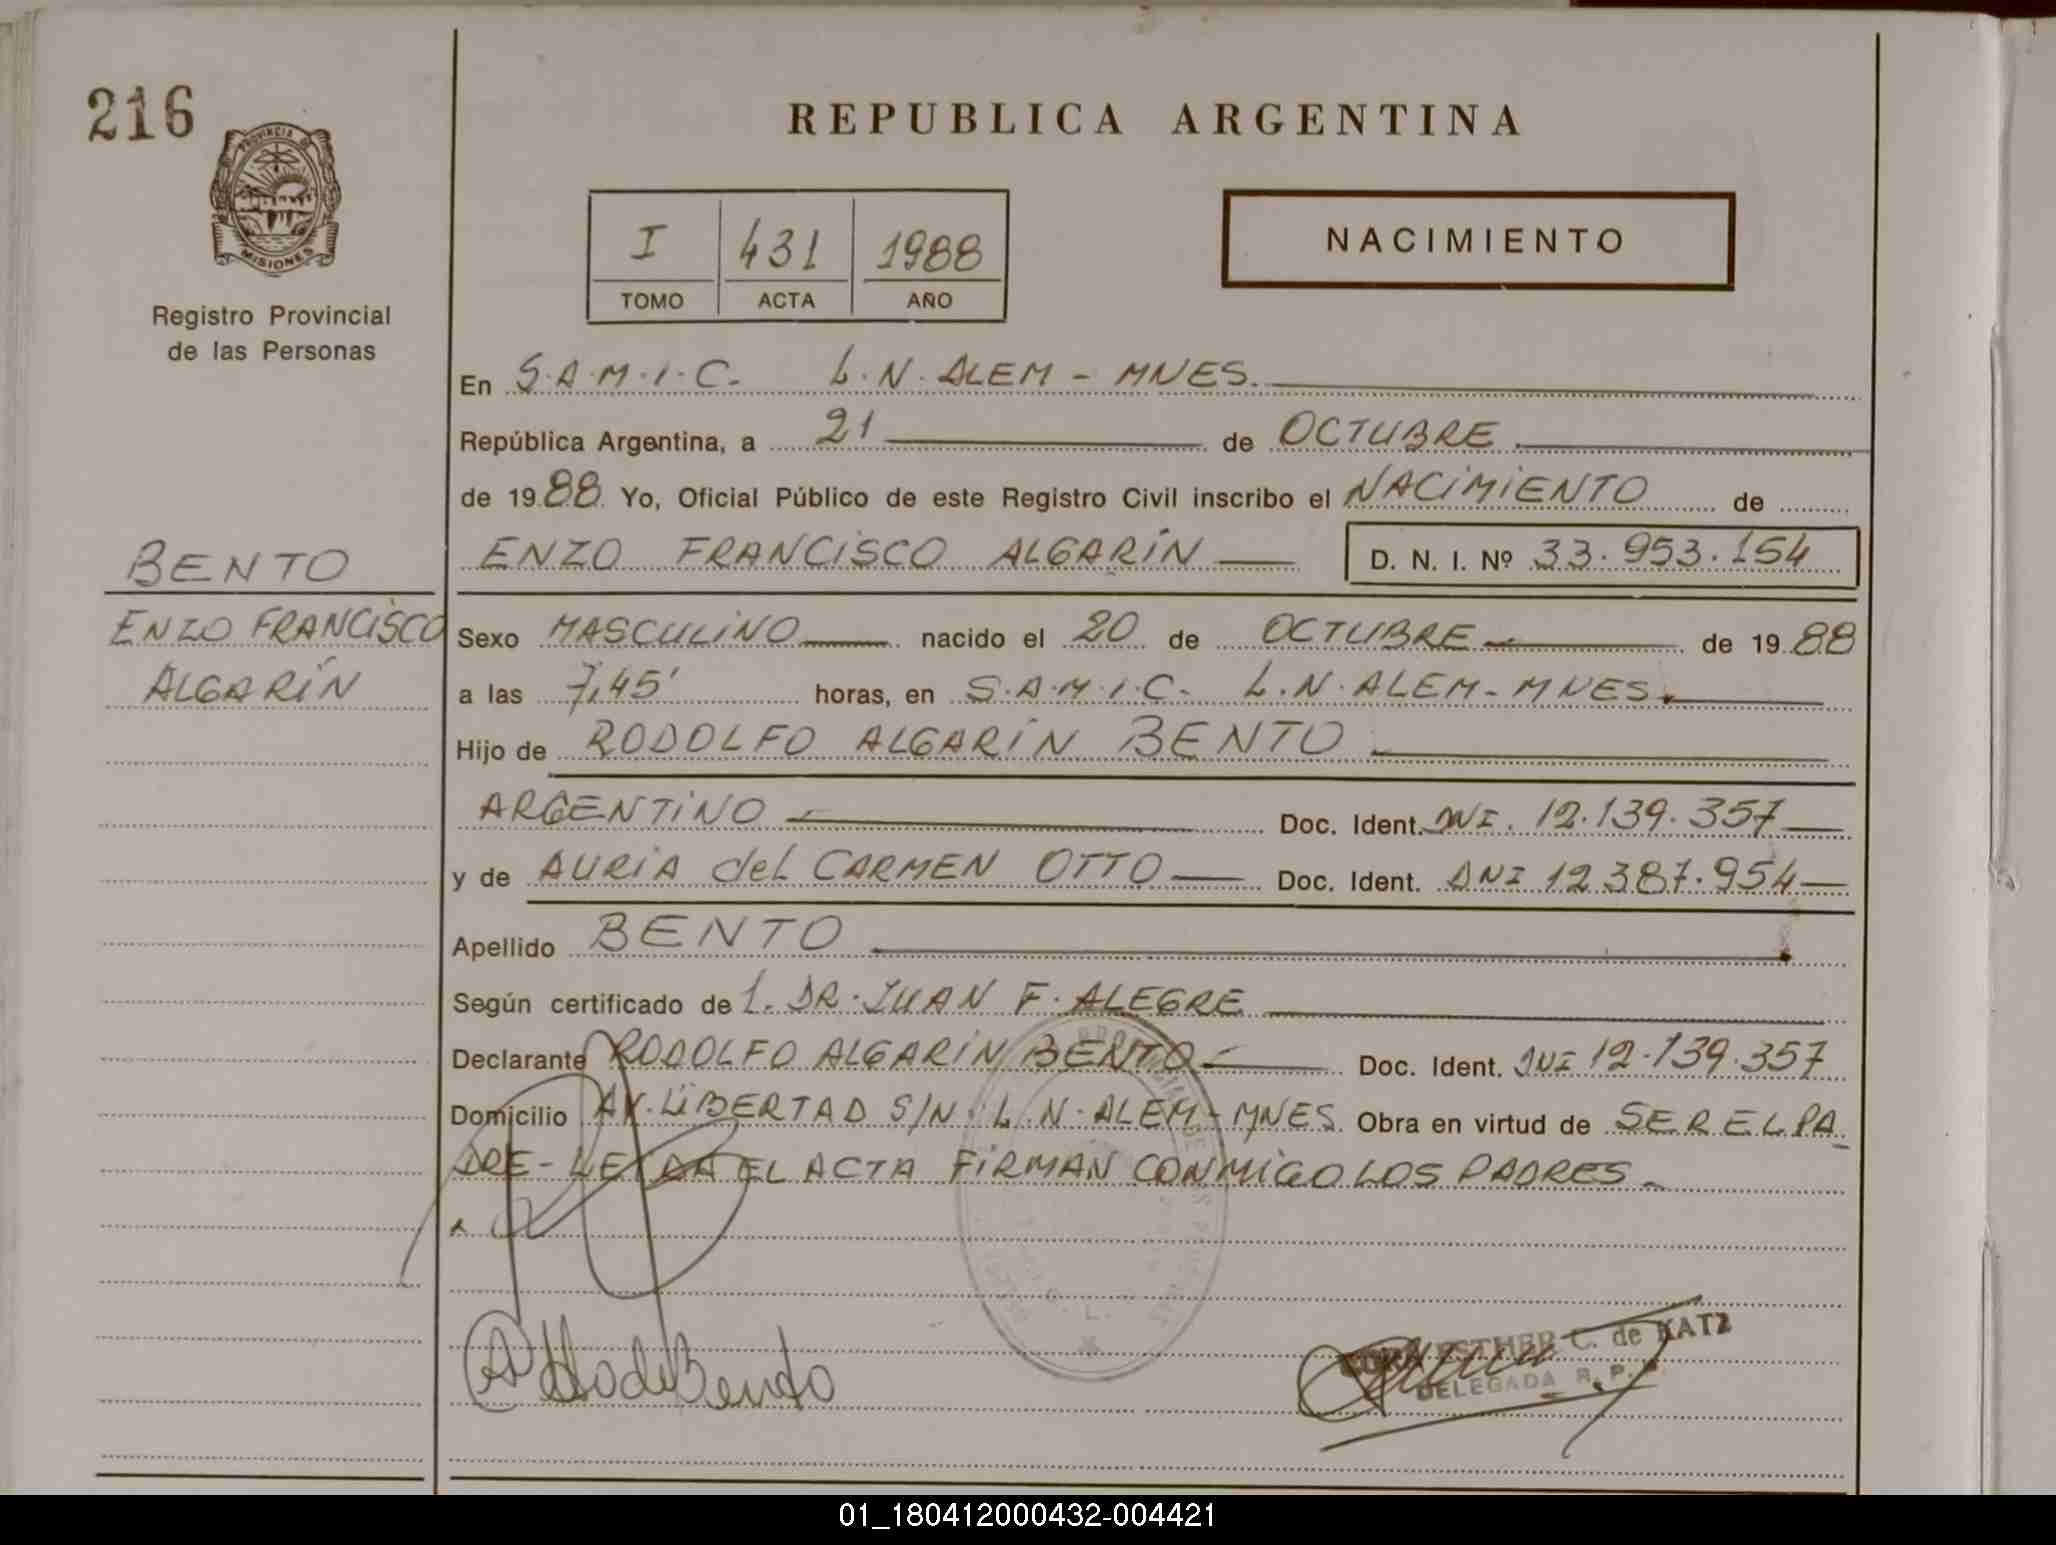 216
PROVINCIA DE
MISIONES
Registro Provincial
de las Personas
BENTO
ENZO FRANCISCO
ALGARÍN
REPUBLICA ARGENTINA
I 431 1988
TOMO ACTA AÑO
NACIMIENTO
En S.A.M.I.C. L.N. ALEM - MNES.
República Argentina, a 21 de OCTUBRE
de 1988. Yo, Oficial Público de este Registro Civil inscribo el NACIMIENTO de
ENZO FRANCISCO ALGARÍN
D. N. I. Nº 33.953.154
Sexo MASCULINO nacido el 20 de OCTUBRE de 1988
a las 7,45' horas, en S.A.M.I.C. L.N. ALEM - MNES.
Hijo de RODOLFO ALGARÍN BENTO
ARGENTINO Doc. Ident. DNI. 12.139.357
y de AURIA del CARMEN OTTO Doc. Ident. DNI 12.387.954
Apellido BENTO
Según certificado de L. DR. JUAN F. ALEGRE
Declarante RODOLFO ALGARÍN BENTO Doc. Ident. DNI 12.139.357
Domicilio AV. LIBERTAD S/N. L.N. ALEM - MNES Obra en virtud de SER EL PA
DRE - LEIDA EL ACTA FIRMAN CONMIGO LOS PADRES -
de Bento
ESTHER C. de KATZ
DELEGADA R. P.
01_180412000432-004421